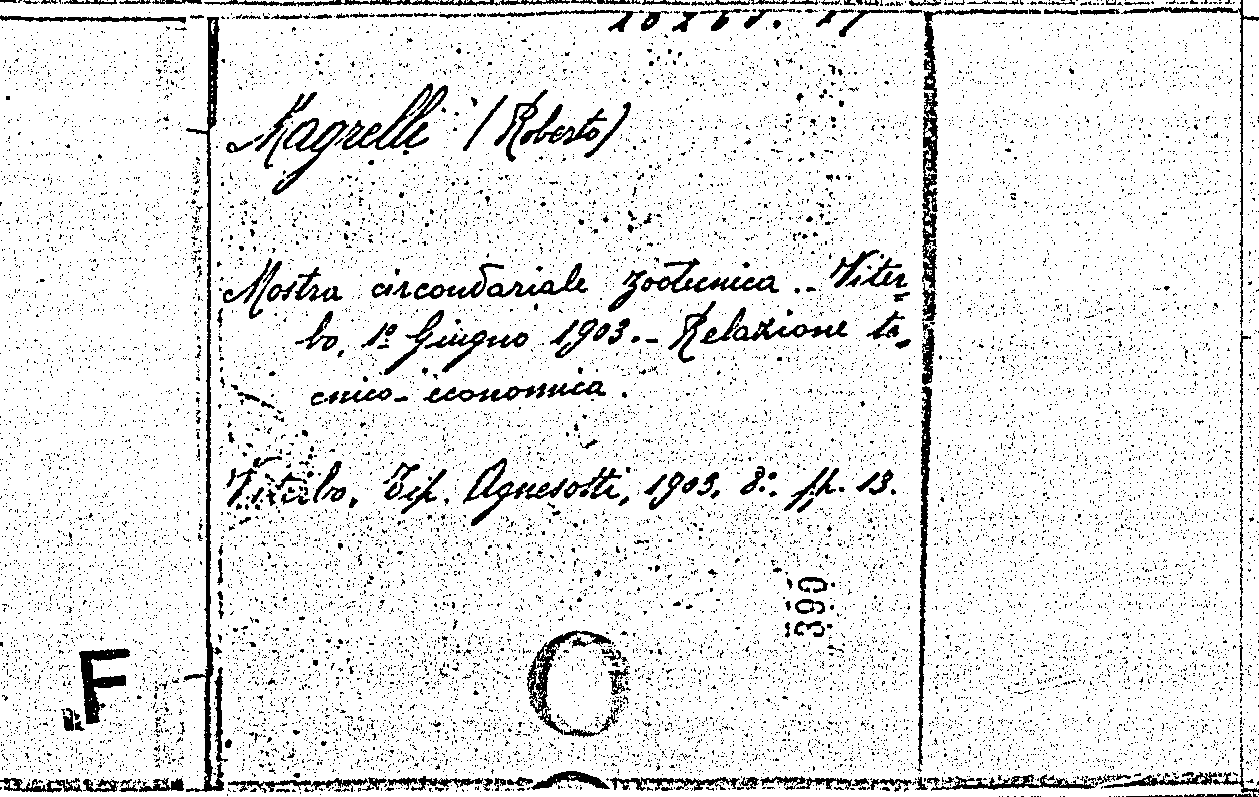 Magrelli (Roberto)
Mostra circondariale zootecnica .- Viter-
bo, 1º Giugno 1903.- Relazione te-
cnico-economica.
Viterbo, Tip. Agnesotti, 1903. 8º. pp. 13.
390
F